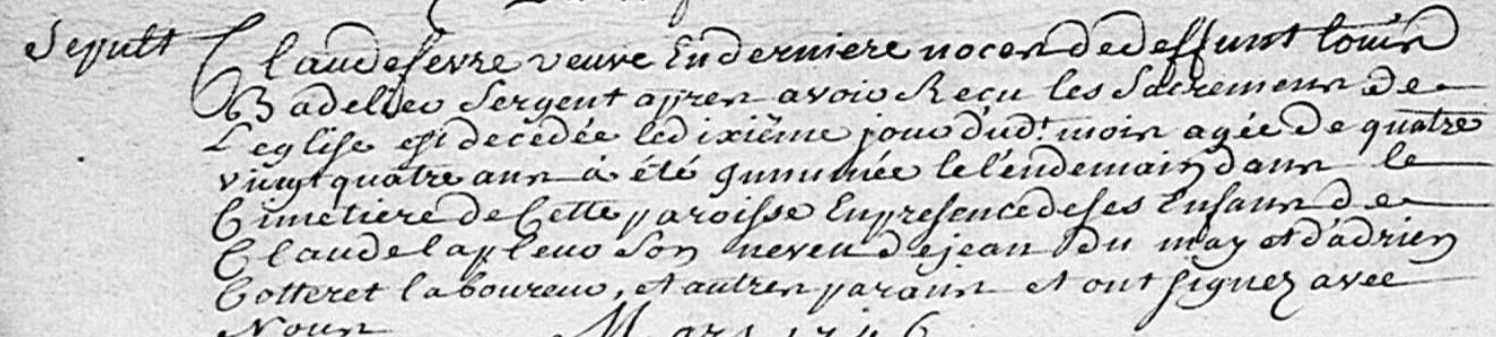 Sepult Claude fevre veuve En derniere noces de deffunt Louis
Badelleu Sergent apres avoir Reçu les Sacremens De
L'eglise est decedée le dixiéme jour dud.t mois agée De quatre
vingt quatre ans à été Inhumée le lendemain dans le
Cimetiere de Cette paroisse En presence de ses Enfans de
Claude Son neveu De jean Du may et d'adrien
Cotteret laboureur, et autres parans et ont signez avec
Nous Mars 1746